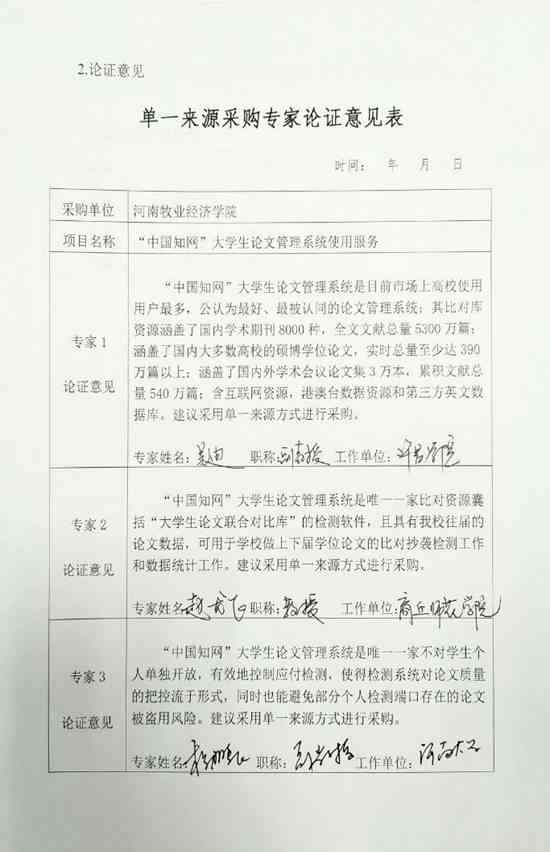 2.论证意见
单一来源采购专家论证意见表
时间： 年 月 日
采购单位 河南牧业经济学院
项目名称 “中国知网”大学生论文管理系统使用服务
专家1
论证意见
“中国知网”大学生论文管理系统是目前市场上高校使用
用户最多，公认为最好、最被认同的论文管理系统；其比对库
资源涵盖了国内学术期刊8000种，全文文献总量5300万篇；
涵盖了国内大多数高校的硕博学位论文，实时总量至少达390
万篇以上；涵盖了国内外学术会议论文集3万本，累积文献总
量540万篇；含互联网资源，港澳台数据资源和第三方英文数
据库。建议采用单一来源方式进行采购。
专家姓名： 职称：副教授 工作单位：
专家2
论证意见
“中国知网”大学生论文管理系统是唯一一家比对资源囊
括“大学生论文联合对比库”的检测软件，且具有我校往届的
论文数据，可用于学校做上下届学位论文的比对抄袭检测工作
和数据统计工作。建议采用单一来源方式进行采购。
专家姓名： 职称：教授 工作单位：商丘师范学院
专家3
论证意见
“中国知网”大学生论文管理系统是唯一一家不对学生个
人单独开放，有效地控制应付检测，使得检测系统对论文质量
的把控流于形式，同时也能避免部分个人检测端口存在的论文
被盗用风险。建议采用单一来源方式进行采购。
专家姓名： 职称：副教授 工作单位：河南大学